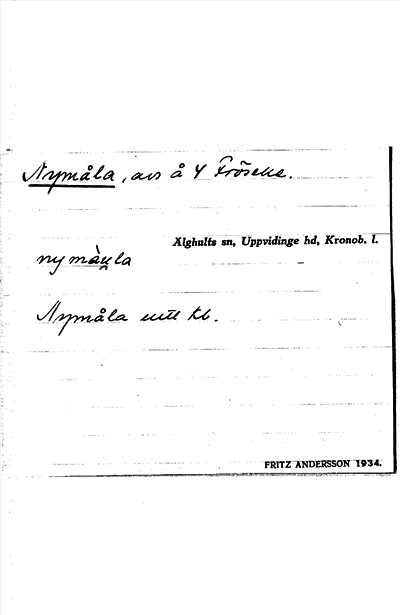 Nymåla, avs å 4 Fröseke.
Älghults sn, Uppvidinge hd, Kronob. l.
nymàu̯la
Nymåla enl kb.
FRITZ ANDERSSON 1934.